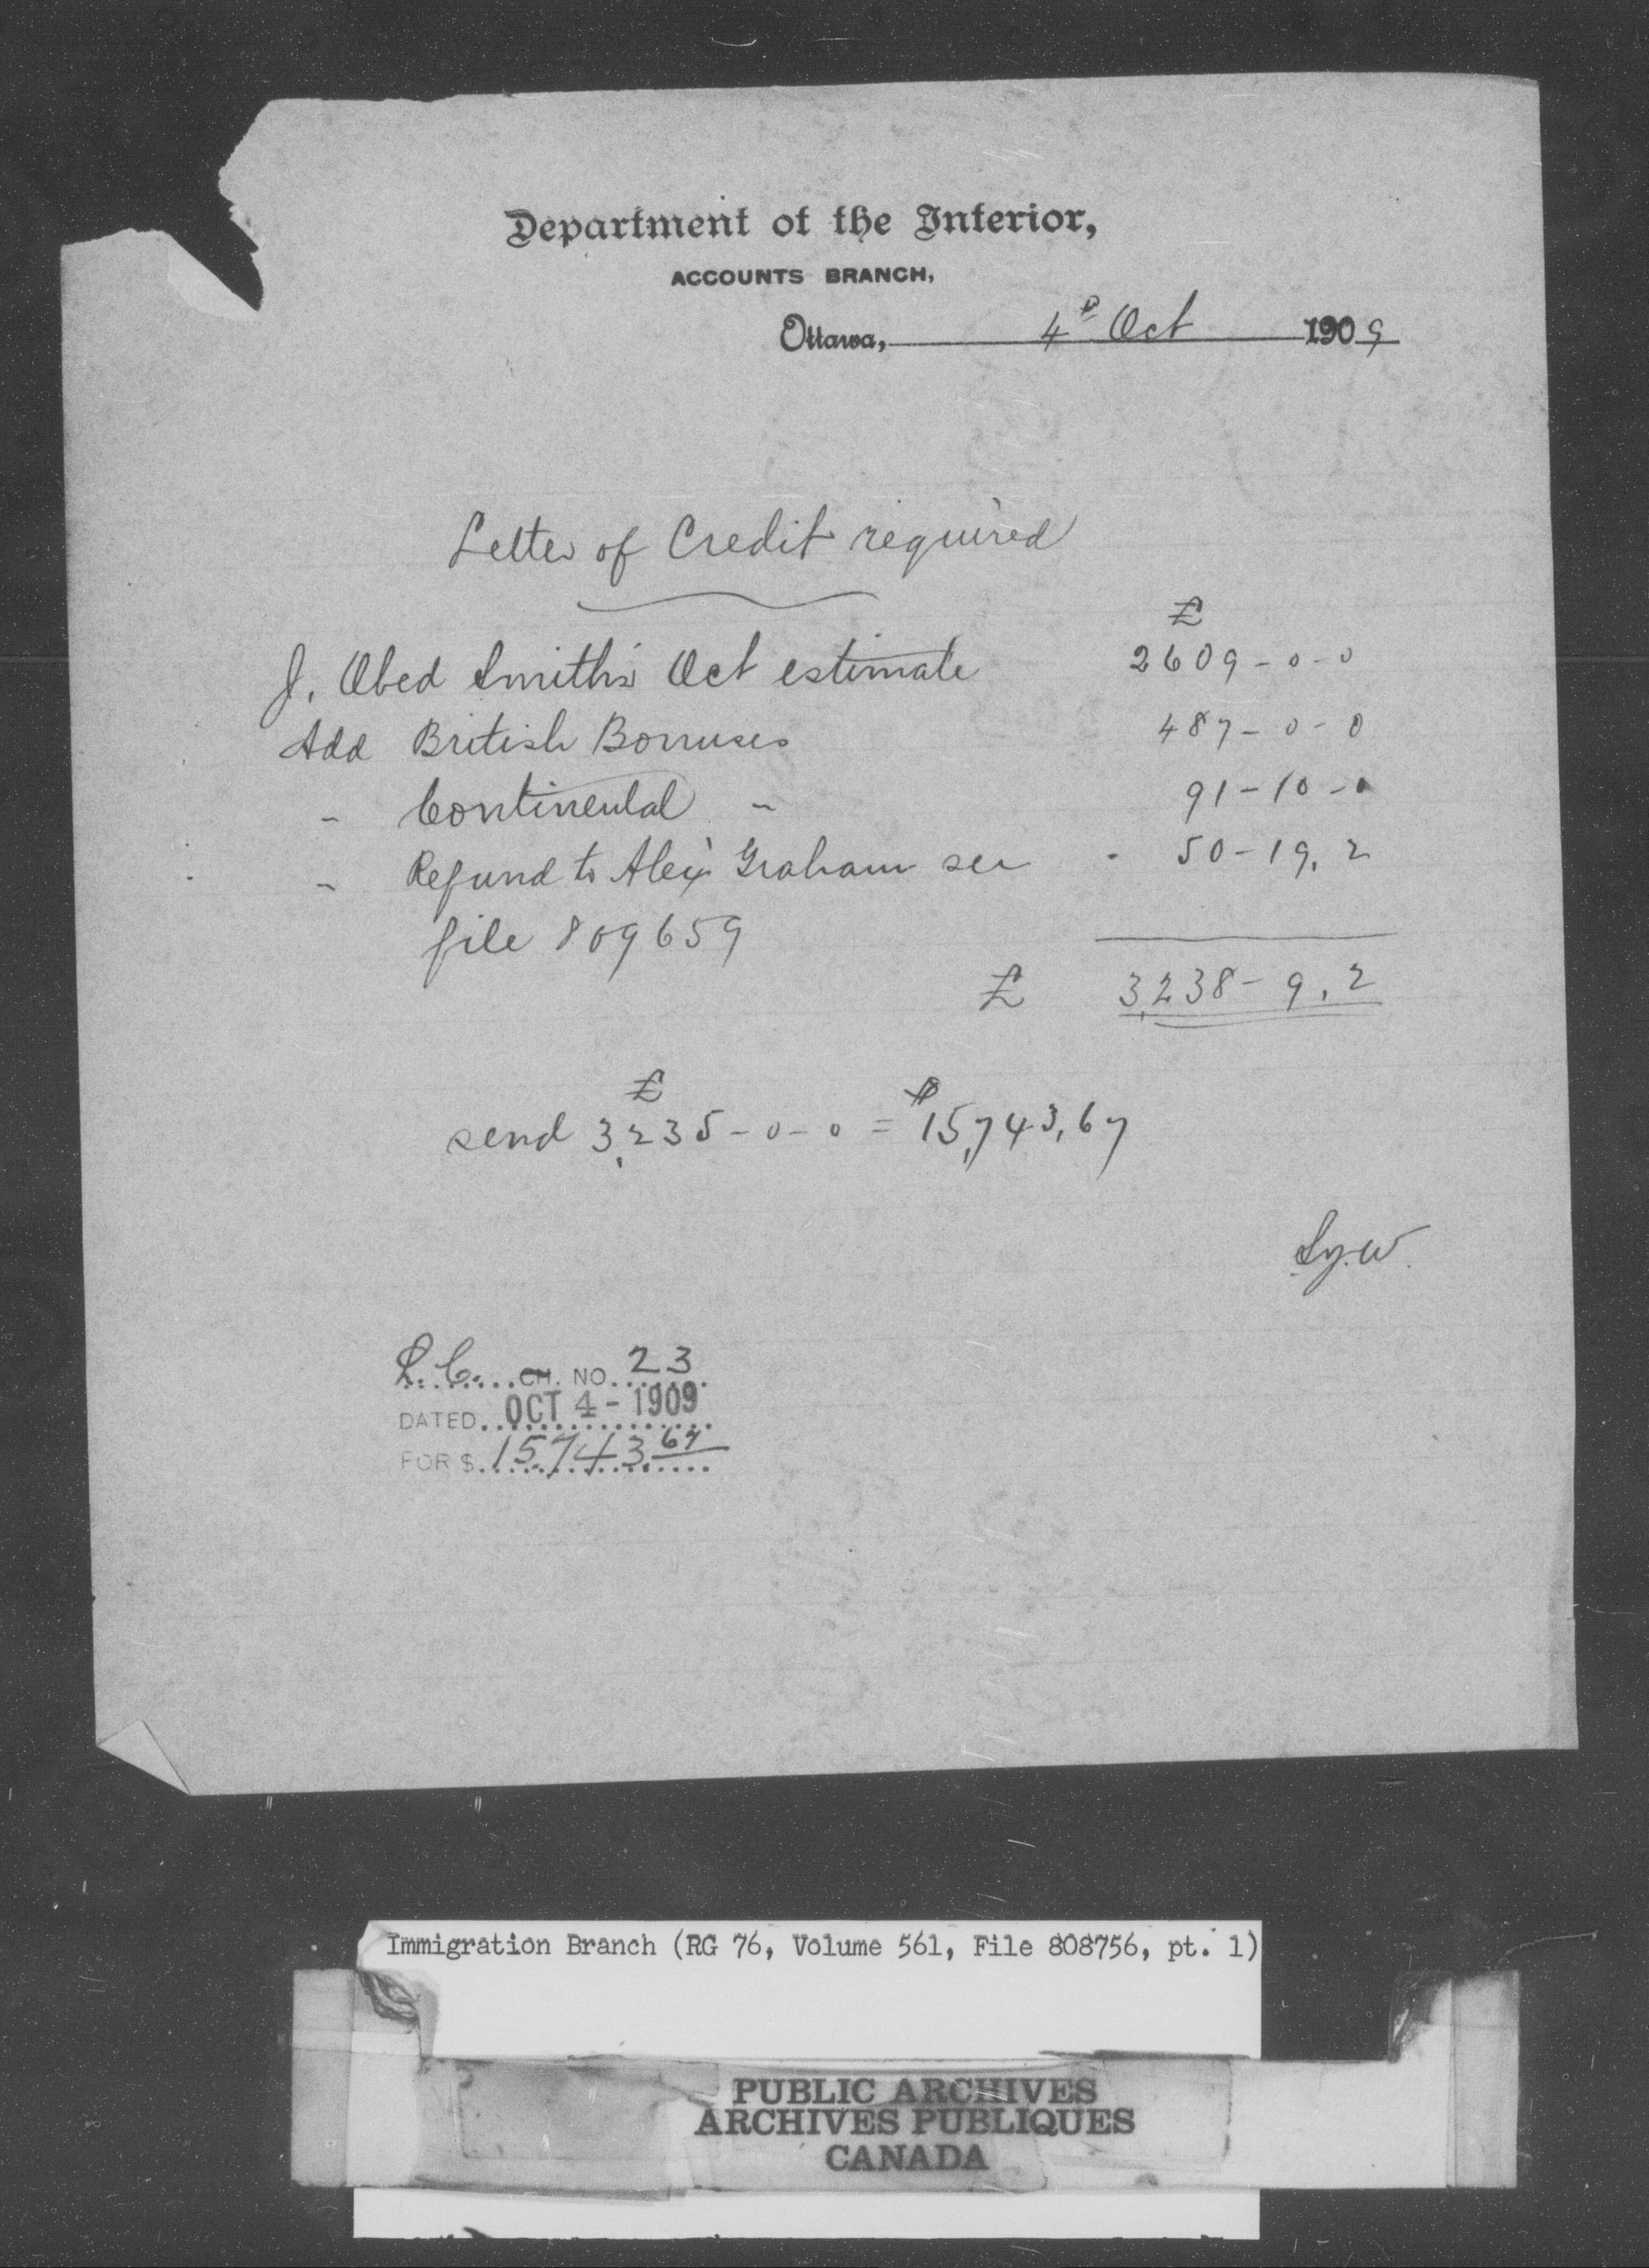 Department of the Interior,
ACCOUNTS BRANCH,
Ottawa, 4th Oct 1909
Letter of Credit required
£
J. Obed Smith's Oct estimate 2609-0-0
Add British Bonuses 487-0-0
" Continental " 91-10-0
" Refund to Alex Graham see 50-19.2
file 809659
£ 3,238-9.2
£ $
send 3,235-0-0 = 15,743.67
L.C. CH. NO. 23
DATED OCT 4-1909
FOR $ 15,743.67
Immigration Branch (RG 76, Volume 561, File 808756, pt. 1)
PUBLIC ARCHIVES
ARCHIVES PUBLIQUES
CANADA